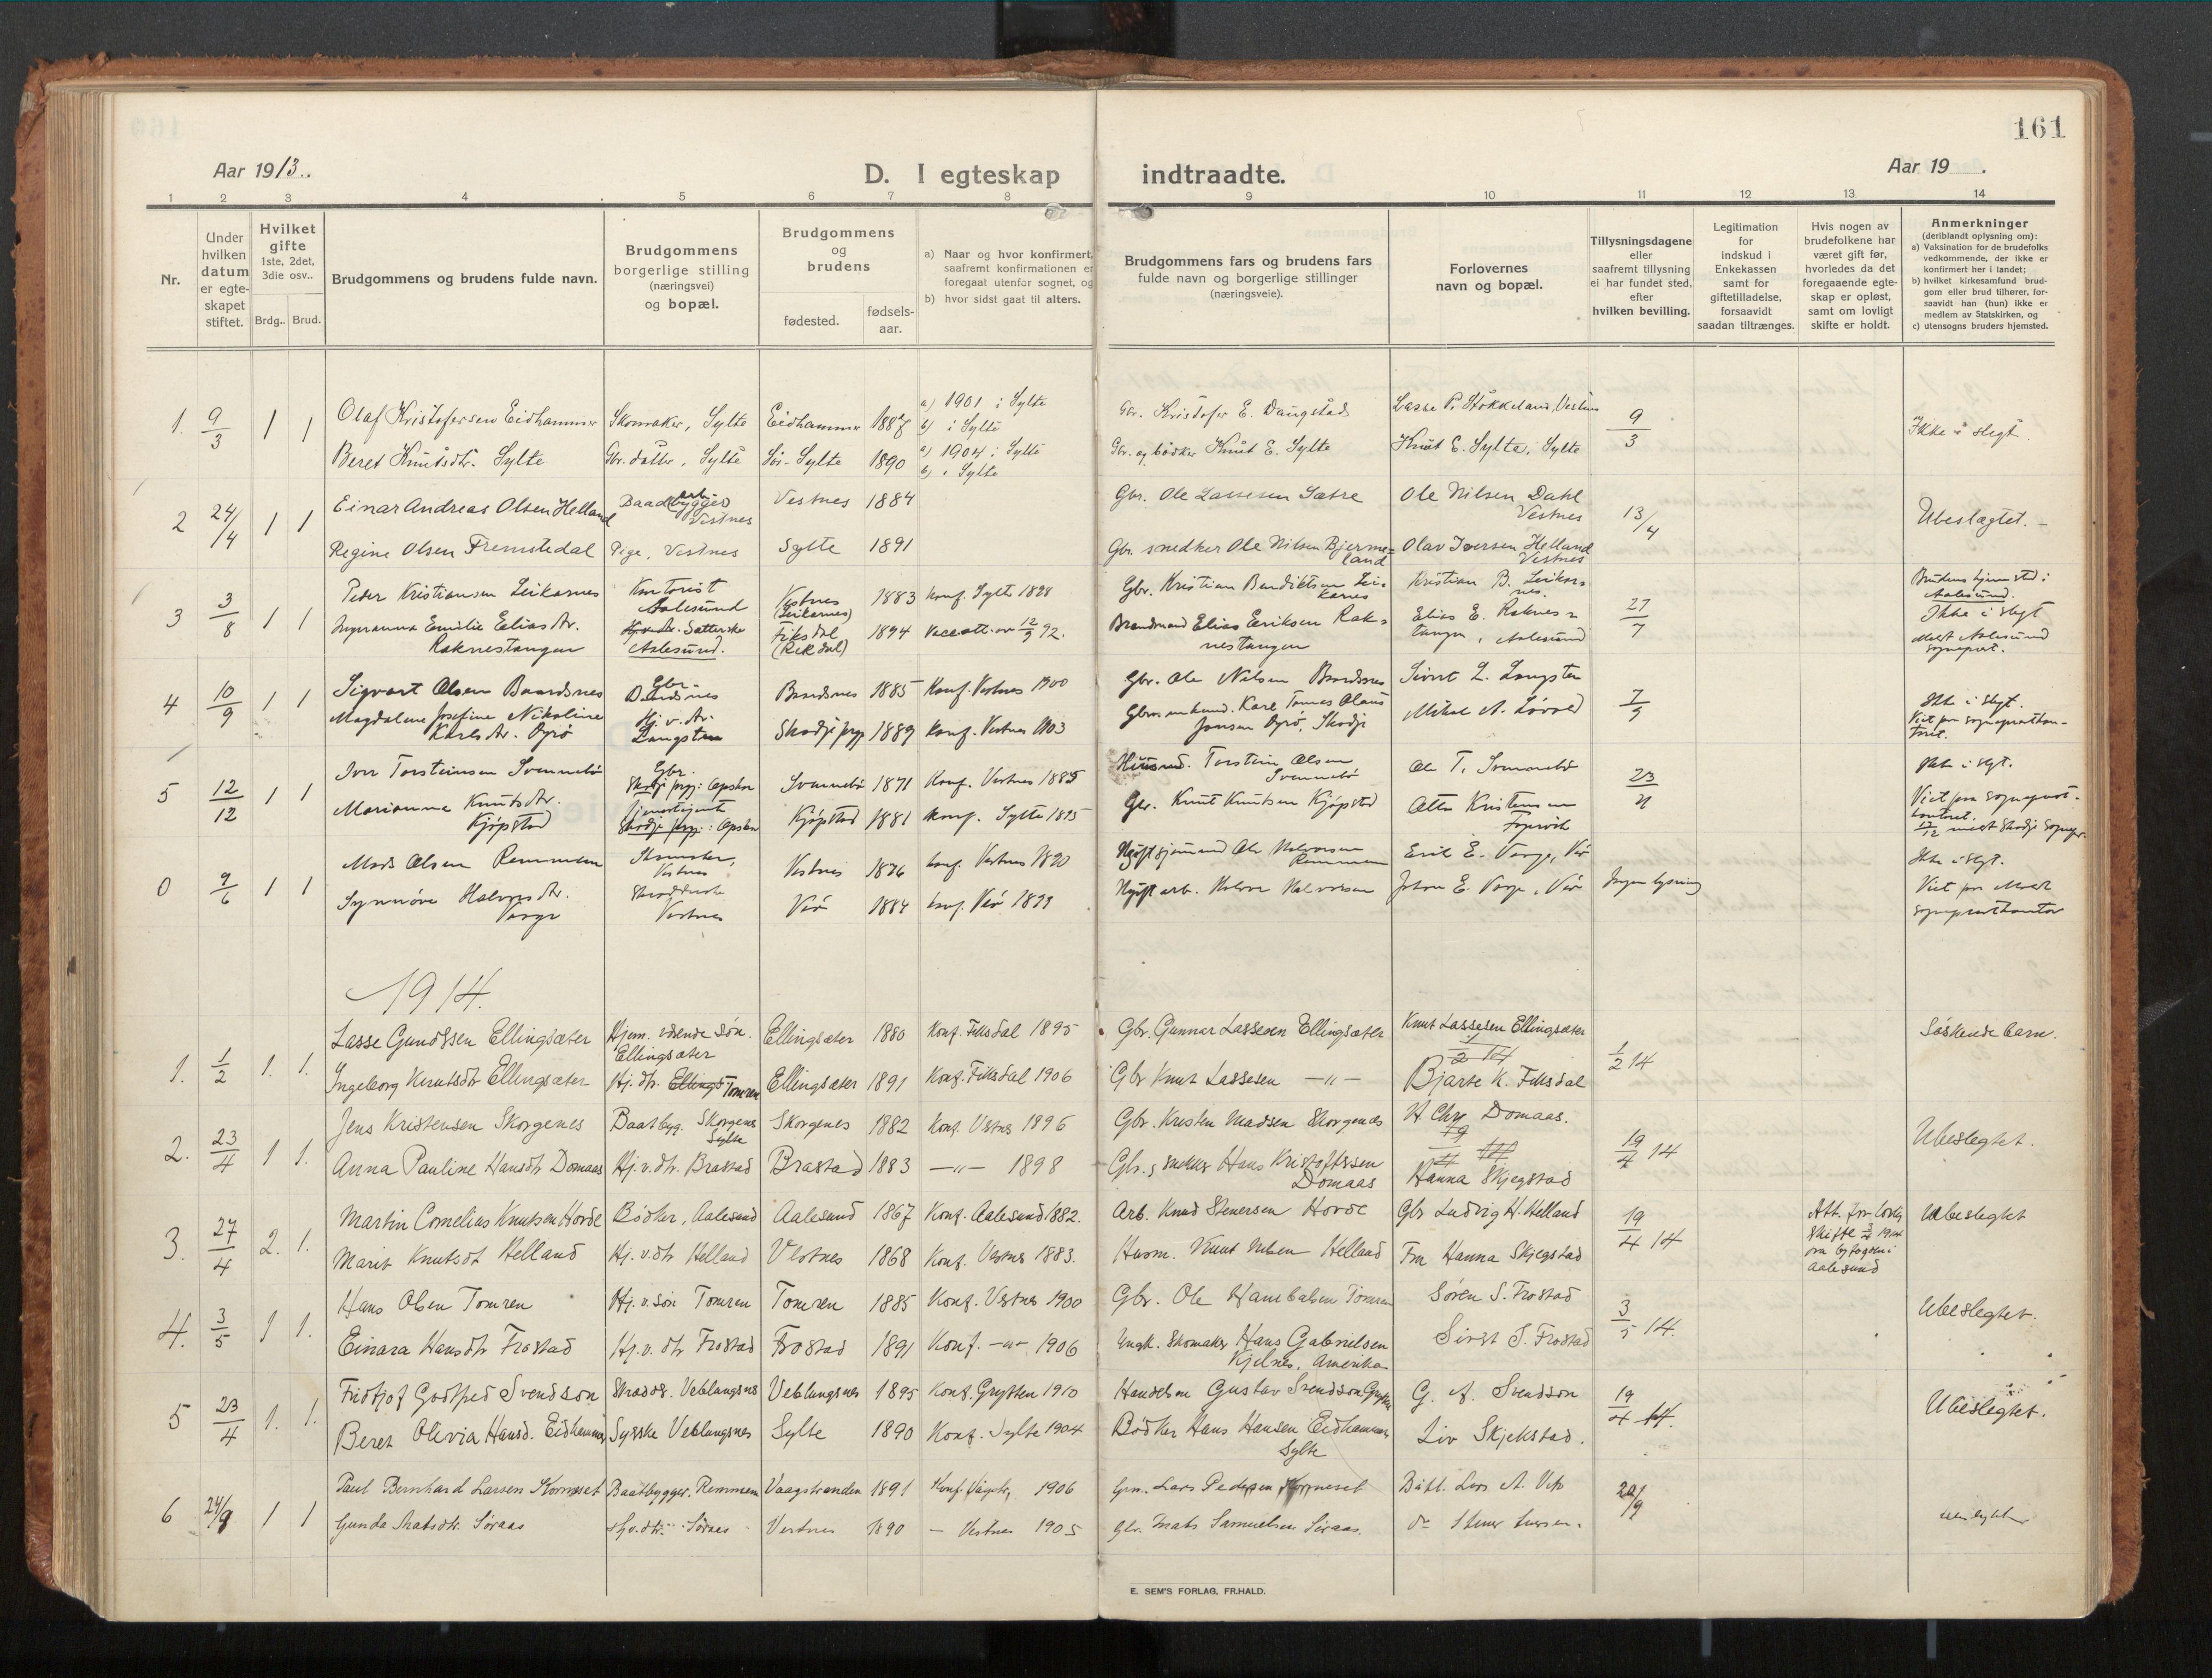 161
Aar 1913.
D. I egteskap indtraadte.
Aar 19 .
1 2 3 4 5 6 7 8 9 10 11 12 13 14
Nr.
Under hvilken datum er egteskapet stiftet.
Hvilket gifte 1ste, 2det, 3die osv..
Brdg.. Brud.
Brudgommens og brudens fulde navn.
Brudgommens borgerlige stilling (næringsvei) og bopæl.
Brudgommens og brudens
fødested.
fødselsaar.
a) Naar og hvor konfirmert, saafremt konfirmationen er foregaat utenfor sognet, og
b) hvor sidst gaat til alters.
Brudgommens fars og brudens fars fulde navn og borgerlige stillinger (næringsveie).
Forlovernes navn og bopæl.
Tillysningsdagene eller saafremt tillysning ei har fundet sted, efter hvilken bevilling.
Legitimation for indskud i Enkekassen samt for giftetilladelse, forsaavidt saadan tiltrænges.
Hvis nogen av brudefolkene har været gift før, hvorledes da det foregaaende egteskap er opløst, samt om lovligt skifte er holdt.
Anmerkninger (deriblandt oplysning om):
a) Vaksination for de brudefolks vedkommende, der ikke er konfirmert her i landet;
b) hvilket kirkesamfund brudgom eller brud tilhører, forsaavidt han (hun) ikke er medlem av Statskirken, og
c) utensogns bruders hjemsted.
1. 9/3 1 1 Olaf Kristofersen Eidhammer Skomaker, Sylte Eidhammer 1887 a) 1901 i Sylte b) i Sylte Gbr. Kristofer E. Daugstad Lasse P. Stokkeland, Vestnes 9/3 Ikke i slegt.
Beret Knutsdtr. Sylte Gbr. datter, Sylte Sør-Sylte 1890 a) 1904 i Sylte b) i Sylte Gbr. og bødker Knut E. Sylte Knut E. Sylte, Sylte
2 24/14 1 1 Einar Andreas Olsen Helland Baadbygger arb. Vestnes Vestnes 1884 Gbr. Ole Lassesen Sætre Ole Nilsen Dahl Vestnes 13/4 Ubeslægtet.
Regine Olsen Fremstedal Pige, Vestnes Sylte 1891 Gbr. snedker Ole Nilsen Bjermeland Olav Iversen Helland Vestnes
3 3/8 1 1 Peder Kristiansen Leikarnes Kontorist Aalesund Vestnes (Leikarnes) 1883 konf. Sylte 1898 Gbr. Kristian Bendiktsen Leikarnes Kristian B. Leikarnes 27/7 Brudens hjemsted: Aalesund. Ikke i slegt
Emilie Elias dtr. Raknestangen Aalesund. Fiksdal 1894 Brandmand Elias Eriksen Raknestangen Elias E. Raknestangen, Aalesund
4 10/9 1 1 Sigvart Olsen Baardsnes Gbr. Baardsnes Baardsnes 1885 Konf. Vestnes 1900 Gbr. Ole Nilsen Baardsnes Sivert L. Langsten 7/9 Ikke i slegt.
Magdalene Josefine Nikoline Karls dtr. Øyrö Hj. v. dtr. Langsten Skodje prgj. 1889 Konf. Vestnes 1903 Karl Tomas Olaus Jonsen Øyrö, Skodje Mikal A. Løvold Viet paa sogneprestkontoret.
5 12/12 1 1 Iver Torsteinsen Svennebø Gbr. Skodje prgj: Svennebø 1871 Konf. Vestnes 1885 Husmd. Torstein Olsen Svennebø Ole T. Svennebø 23/11 Ikke i slegt.
Marianne Knuts dtr. Kjøpstad Skodje prgj: Kjøpstad 1881 konf. Sylte 1895 Gbr. Knut Knutsen Kjøpstad Otto Kristensen Viet paa sogneprestkontoret.
0 9/6 1 1 Mads Olsen Remmem Vestnes Vestnes 1876 konf. Vestnes 1890 Remmem Erik E. Varge, Veø Ikke i slegt.
Synnöve Halvors dtr. Varge Vestnes Veø 1884 konf. Veø 1899 Halvor Halvorsen Johan E. Varge, Veø Ingen lysning Viet paa Molde sogneprestkontor
1914.
1. 1/2 1. 1. Lasse Gundssen Ellingsæter Hjem. værende søn. Ellingsæter Ellingsæter 1880 Konf. Fiksdal 1895 Gbr. Gunnar Lassesen Ellingsæter Knut Lassesen Ellingsæter 1/2 14 Søskende barn.
Ingeborg Knutsdtr Ellingsæter Hj. dtr. Tomren Ellingsæter 1891 Konf. Fiksdal 1906 Gbr Knut Lassesen —"— Bjarte K. Fiksdal
2. 23/4 1 1. Jens Kristensen Skorgenes Baatbyg. Skorgenes Sylte Skorgenes 1882 Konf. Vestnes 1896 Gbr. Kristen Madsen Skorgenes H. Chr. Domaas. 19/4 14 Ubeslegtet.
Anna Pauline Hansdtr Domaas Hj. v. dtr. Brastad Brastad 1883 —"— 1898 Gbr., snekker Hans Kristoffersen Domaas Hanna Skjegstad
3. 27/4 2. 1. Martin Cornelius Knutsen Hovde Bødker, Aalesund Aalesund 1867 Konf. Aalesund 1882. Arb. Knud Stenersen Hovde Gbr Ludvig H. Helland 19/4 14 Att. for lovlig skifte 1914 fra byfogden i Aalesund Ubeslegtet
Marit Knutsdt Helland Hj. v. dtr Helland Vestnes 1868 Konf. Vestnes 1883. Husm. Knut Nilsen Helland Fru Hanna Skjegstad
4. 3/5 1 1. Hans Olsen Tomren Hj. v. søn Tomren Tomren 1885 Konf. Vestnes 1900 Gbr. Ole Hanibalsen Tomren Søren S. Frostad 3/5 14. Ubeslegtet.
Einara Hansdtr Frostad Hj. v. dtr Frostad Frostad 1891 Konf. —"— 1906 Ungk. Skomaker Hans Gabrielsen Kjelnes, Amerika Sivert S. Frostad
5 23/4 1. 1. Fridtjof Godtfred Svendson Skrædd. Veblungsnes Veblungsnes 1895 Konf. Grytten 1910 Handelsm Gustav Svendson Grytten G. A. Svendson 19/4 14. Ubeslegtet.
Beret Olivia Hansd. Eidhammer Syerske Veblungsnes Sylte 1890 Konf. Sylte 1904 Bødker Hans Hansen Eidhammer Sylte Liv Skjekstad.
6 24/9 1 1 Paul Bernhard Larsen Kormeset Baatbygger, Remmem Vaagstranden 1891 Konf. Vaagstr. 1906 Grn. Lars Pedersen Kormeset Lars A. Vik 20/9
Gunda Matsdtr. Søraas Hj. v. dtr. Søraas Vestnes 1890 — Vestnes 1905 Gbr. Mats Samuelsen Søraas. do Iversen.
E. SEM'S FORLAG, FR.HALD.